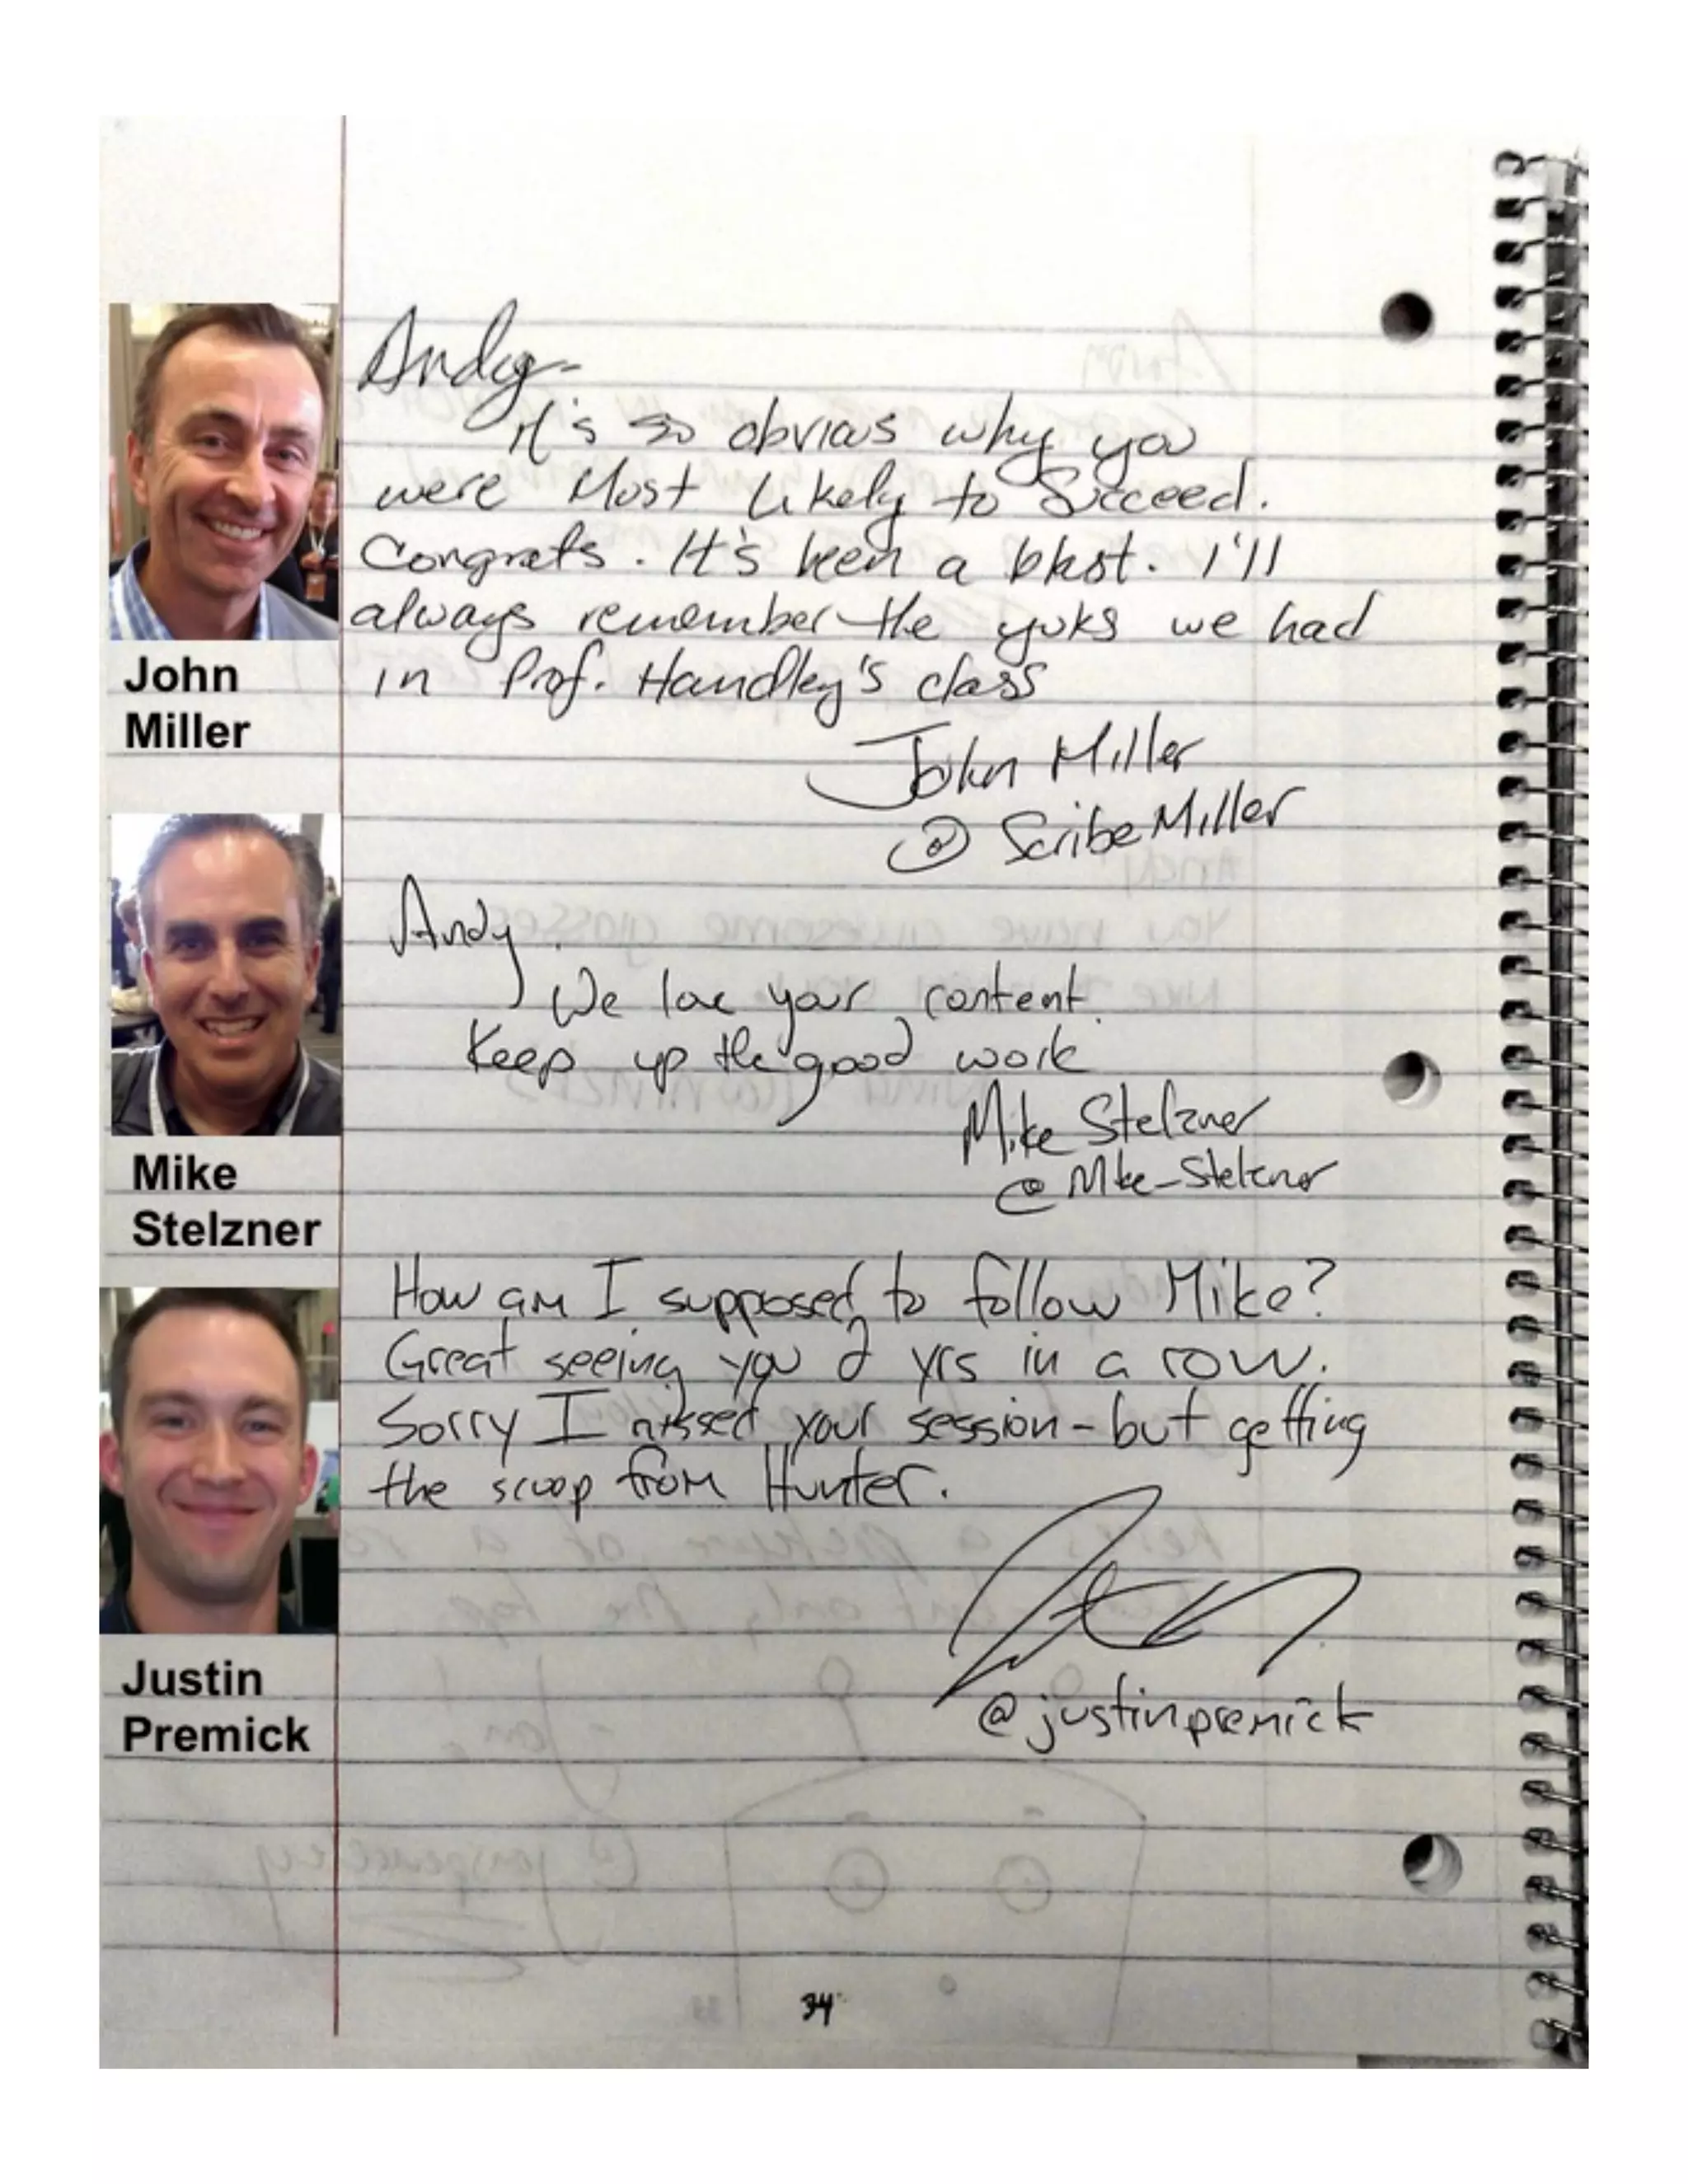 Andy-
It's so obvious why you
were Most Likely to Succeed.
Congrats. It's been a blast. I'll
always remember the yuks we had
in Prof. Handley's class
John Miller
@ScribeMiller
John
Miller
Andy.
We love your content.
Keep up the good work
Mike Stelzner
@Mike_Stelzner
Mike
Stelzner
How am I supposed to follow Mike?
Great seeing you 2 yrs in a row.
Sorry I missed your session - but getting
the scoop from Hunter.
@justinpremick
Justin
Premick
34